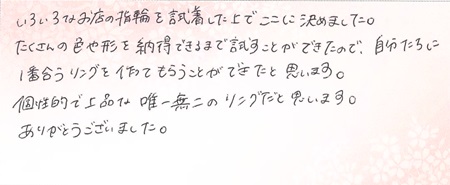 いろいろなお店の指輪を試着した上でここに決めました。
たくさんの色や形を納得できるまで試すことができたので、自分たちに
1番合うリングを作ってもらうことができたと思います。
個性的で上品な唯一無二のリングだと思います。
ありがとうございました。